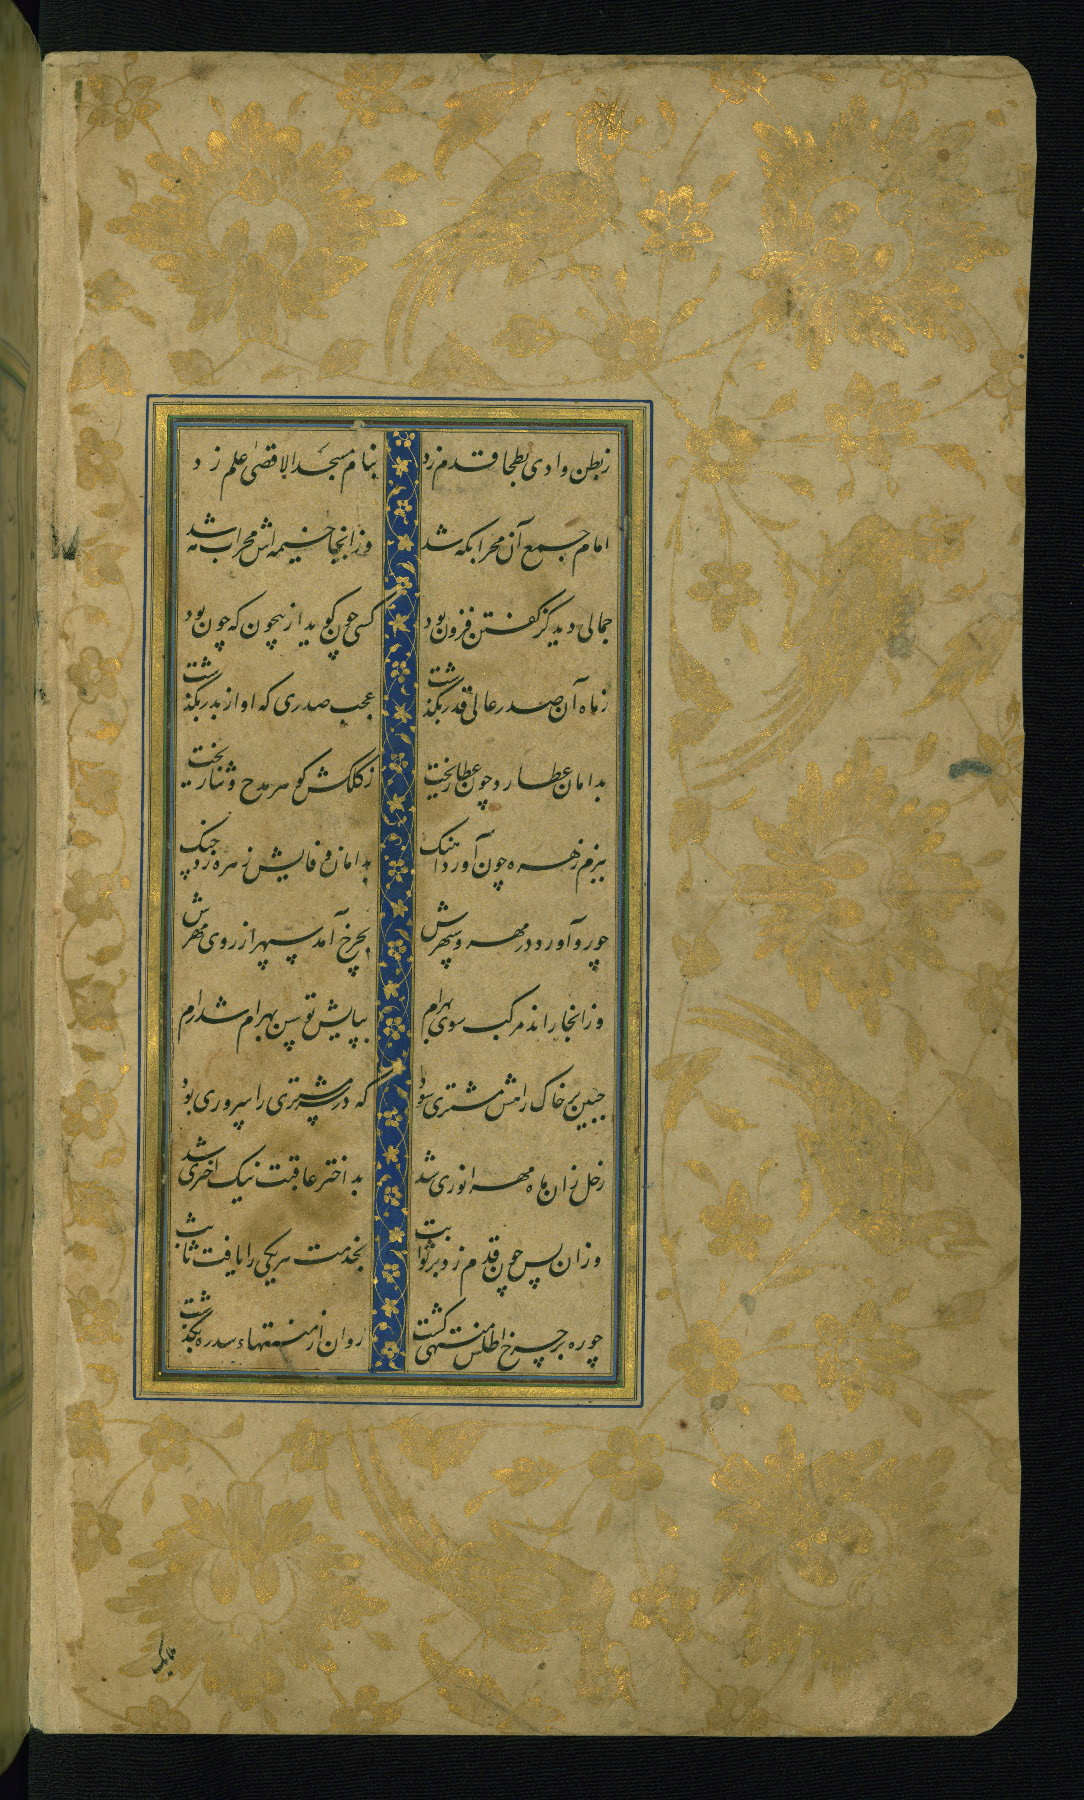 زبطن وادی بطحا قدم زد بنام مسجد الاقصی علم زد
امام جمع آن محرابکه شد وزانجا خیمه‌اش محراب مه شد
جمالی دید کز کفتن فزون بود کسی چون کوید از بیچون که چون بود
زماه آن صدر عالی قدر بکذشت عجب صدری که او از بدر بکذشت
بدامان عطارد چون عطا ریخت زکلکش کوهر مدح و ثنا ریخت
ببزم زهره چون آورد آهنک بدامان وفایش زهره زد چنک
چو رو آورد در مهر و سپهرش بچرخ آمد سپهر از روی مهرش
وزانجا راند مرکب سوی بهرام بپایش توسن بهرام شد رام
جبین بر خاک راهش مشتری سود که در مشتری را سپروری بود
زحل زان ماه مهر انوری شد بد اختر عاقبت نیک اختری شد
وزان پس چون قدم زد بر ثوابت بخدمت هر یکی را یافت ثابت
چو ره بر چرخ اطلس منتهی کشت روان از منتهاء سدره بکذشت